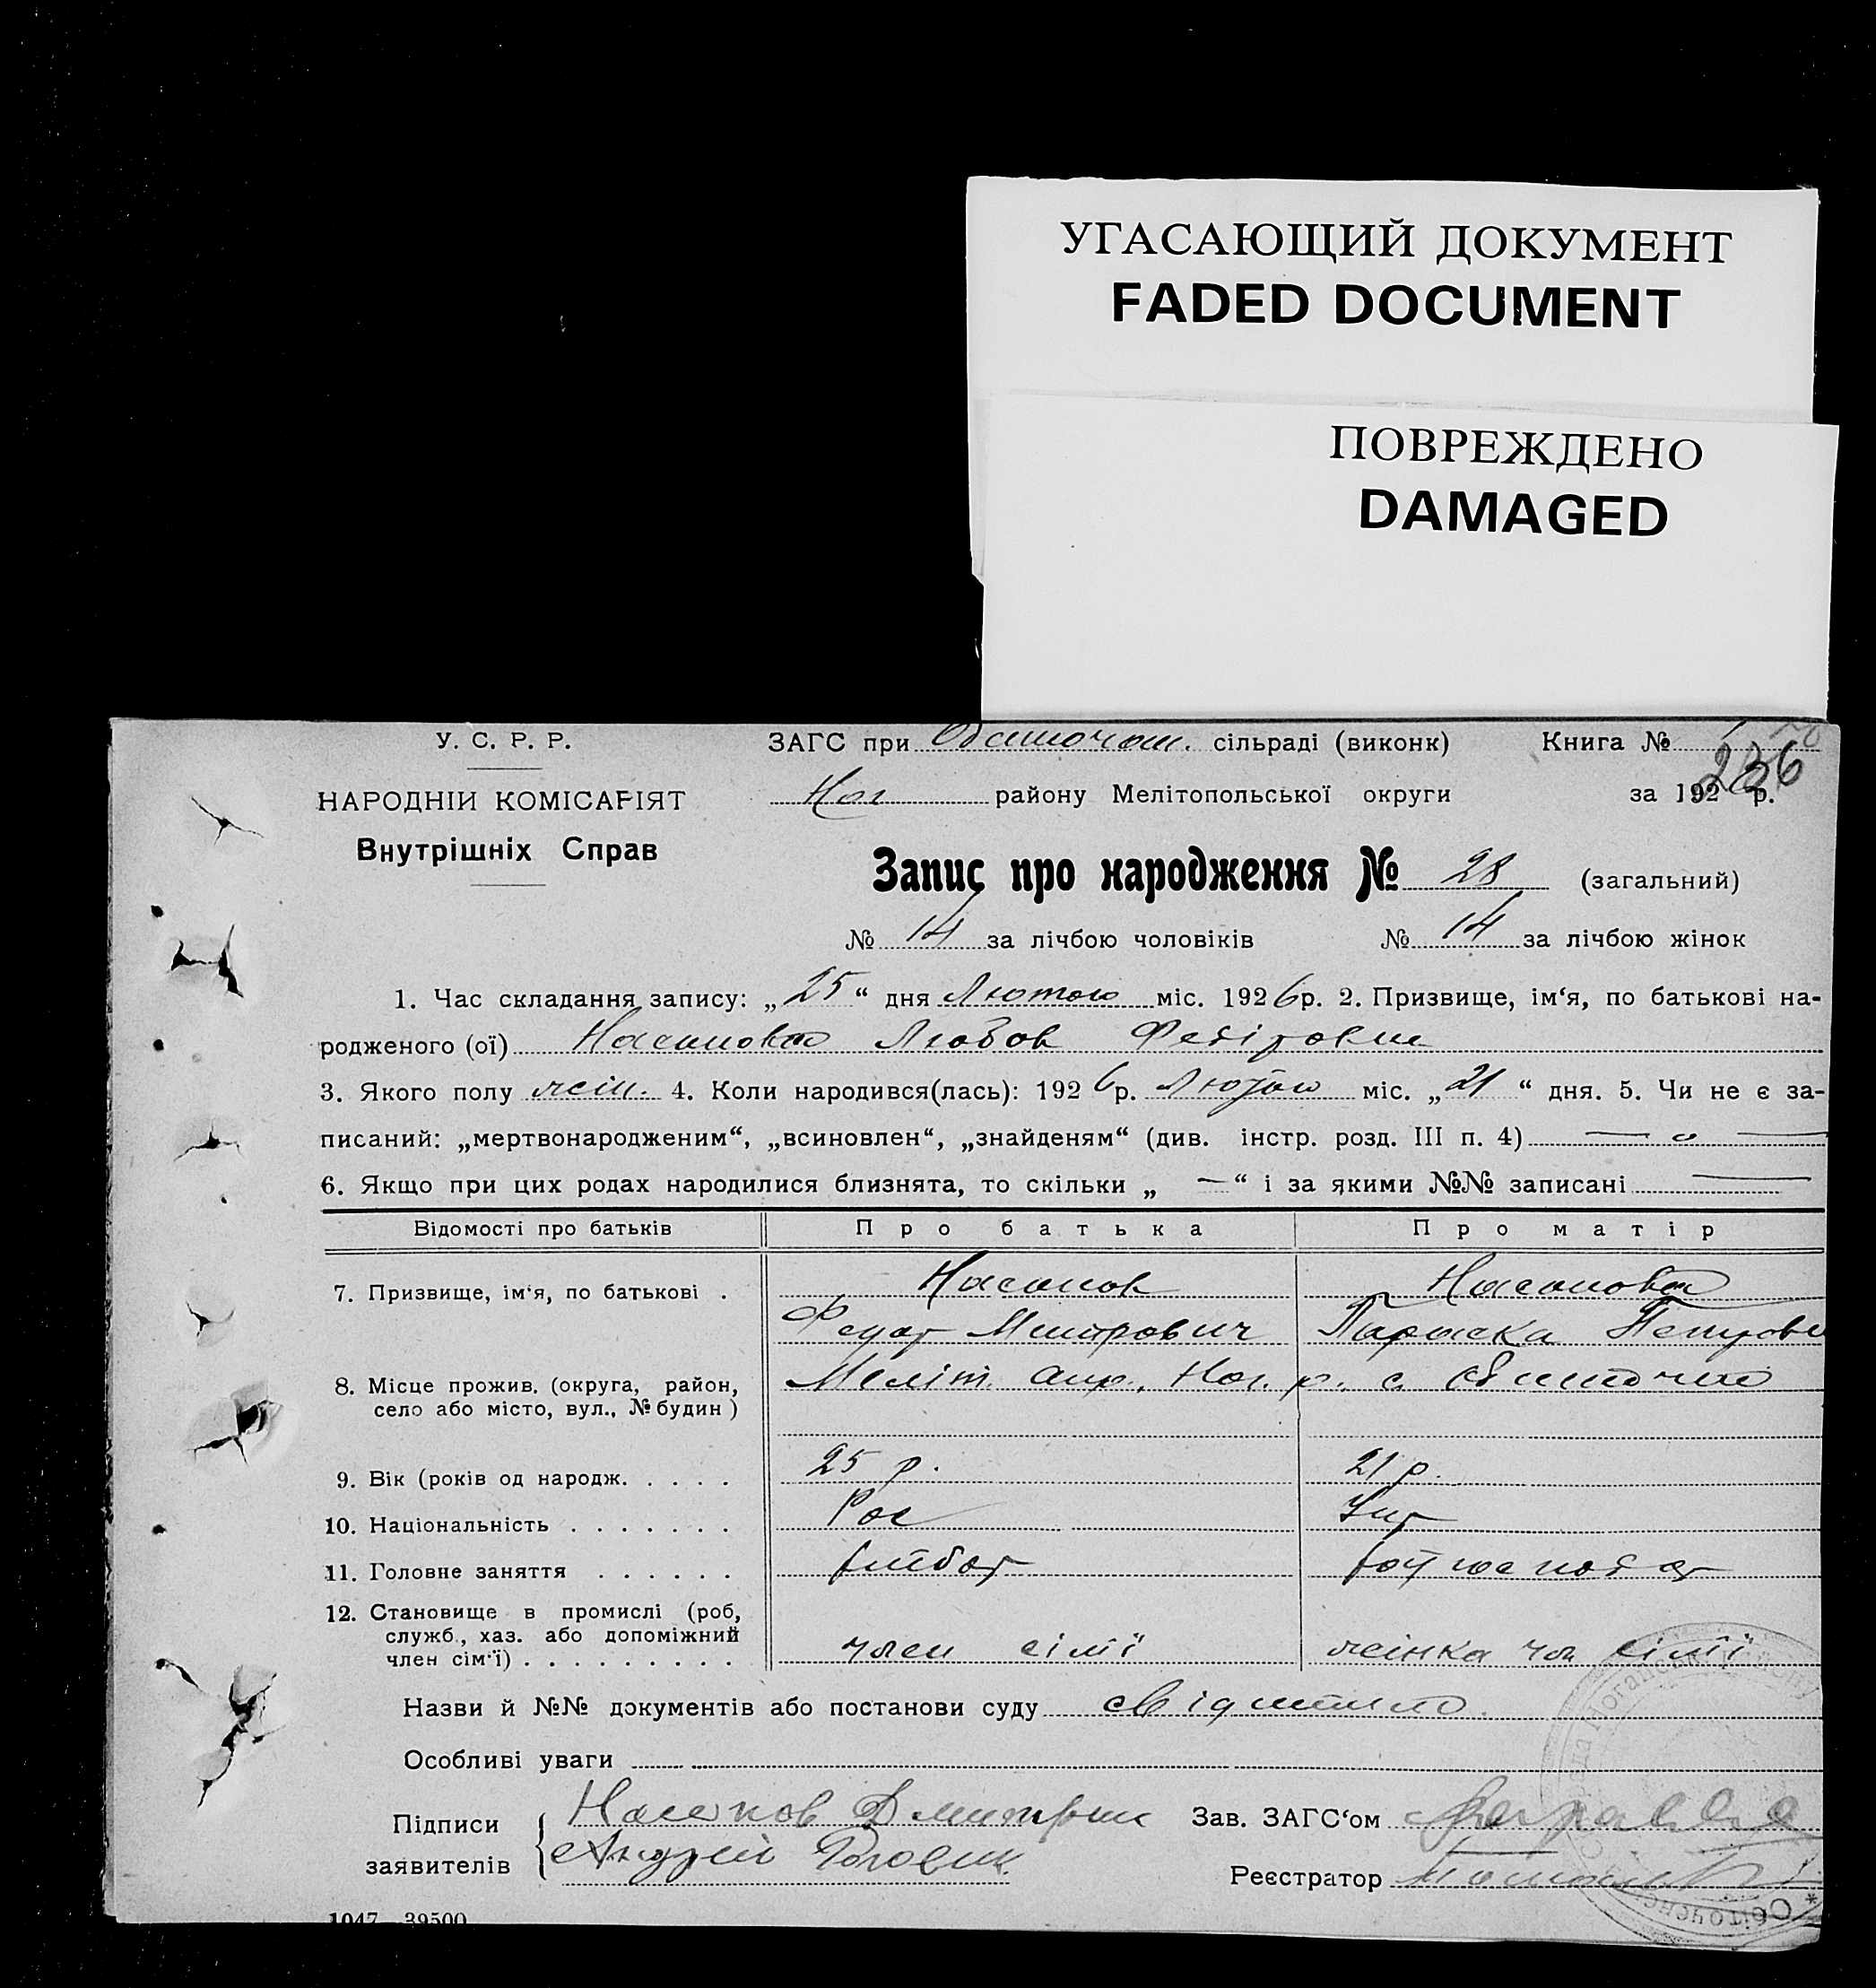 УГАСАЮЩИЙ ДОКУМЕНТ
FADED DOCUMENT
ПОВРЕЖДЕНО
DAMAGED
У. С. Р. Р. ЗАГС при сільраді (виконк) Книга №
236
НАРОДНІЙ КОМІСАРІЯТ Ног району Мелітопольської округи за 192 р.
Внутрішніх Справ
Запис про народження № 28 (загальний)
№ 14 за лічбою чоловіків № 14 за лічбою жінок
1. Час складання запису: „25“ дня Лютого міс. 1926 р. 2. Призвище, ім‘я, по батькові на-
родженого (ої) Насонова Любов
3. Якого полу жін. 4. Коли народився(лась): 1926 р. Лютого міс. „21“ дня. 5. Чи не є за-
писаний: „мертвонародженим“, „всиновлен“, „знайденям“ (див. інстр. розд. III п. 4) —
6. Якщо при цих родах народилися близнята, то скільки „—“ і за якими №№ записані —
Відомості про батьків Про батька Про матір
7. Призвище, ім‘я, по батькові . Насонов Насонова
Федор Митрович Параска
8. Місце прожив. (округа, район, Меліт. окр., Ног. р. с.
село або місто, вул., № будин )
9. Вік (років од народж. . . . . 25 р. 21 р.
10. Національність . . . . . . . Рос Укр
11. Головне заняття . . . . . . хлібор
12. Становище в промислі (роб,
служб., хаз. або допоміжний
член сім‘ї) . . . . . . . . . член сімї жінка чл сімї
Назви й №№ документів або постанови суду
Особливі уваги
Підписи Насонов Зав. ЗАГС‘ом
заявителів Андрей Реєстратор
1047—39500